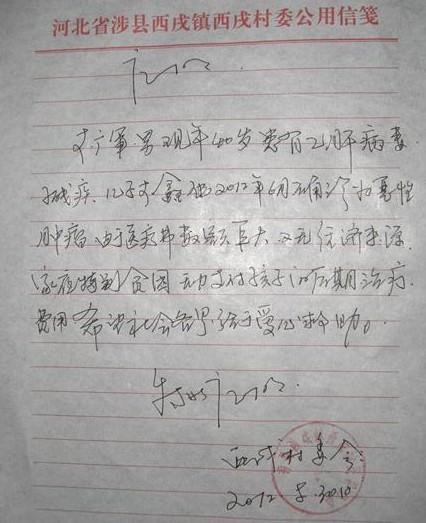 河北省涉县西戌镇西戌村委公用信笺
证明
广军 男 现年40岁 患有乙肝病毒
残疾、儿子 鑫 2012年6月确诊为恶性
肿瘤 由于医疗费数额巨大 又无经济来源
家庭特别贫困 无力支付孩子的后期治疗
费用 希望社会各界给予爱心救助。
特此证明
西戌村委会
2012